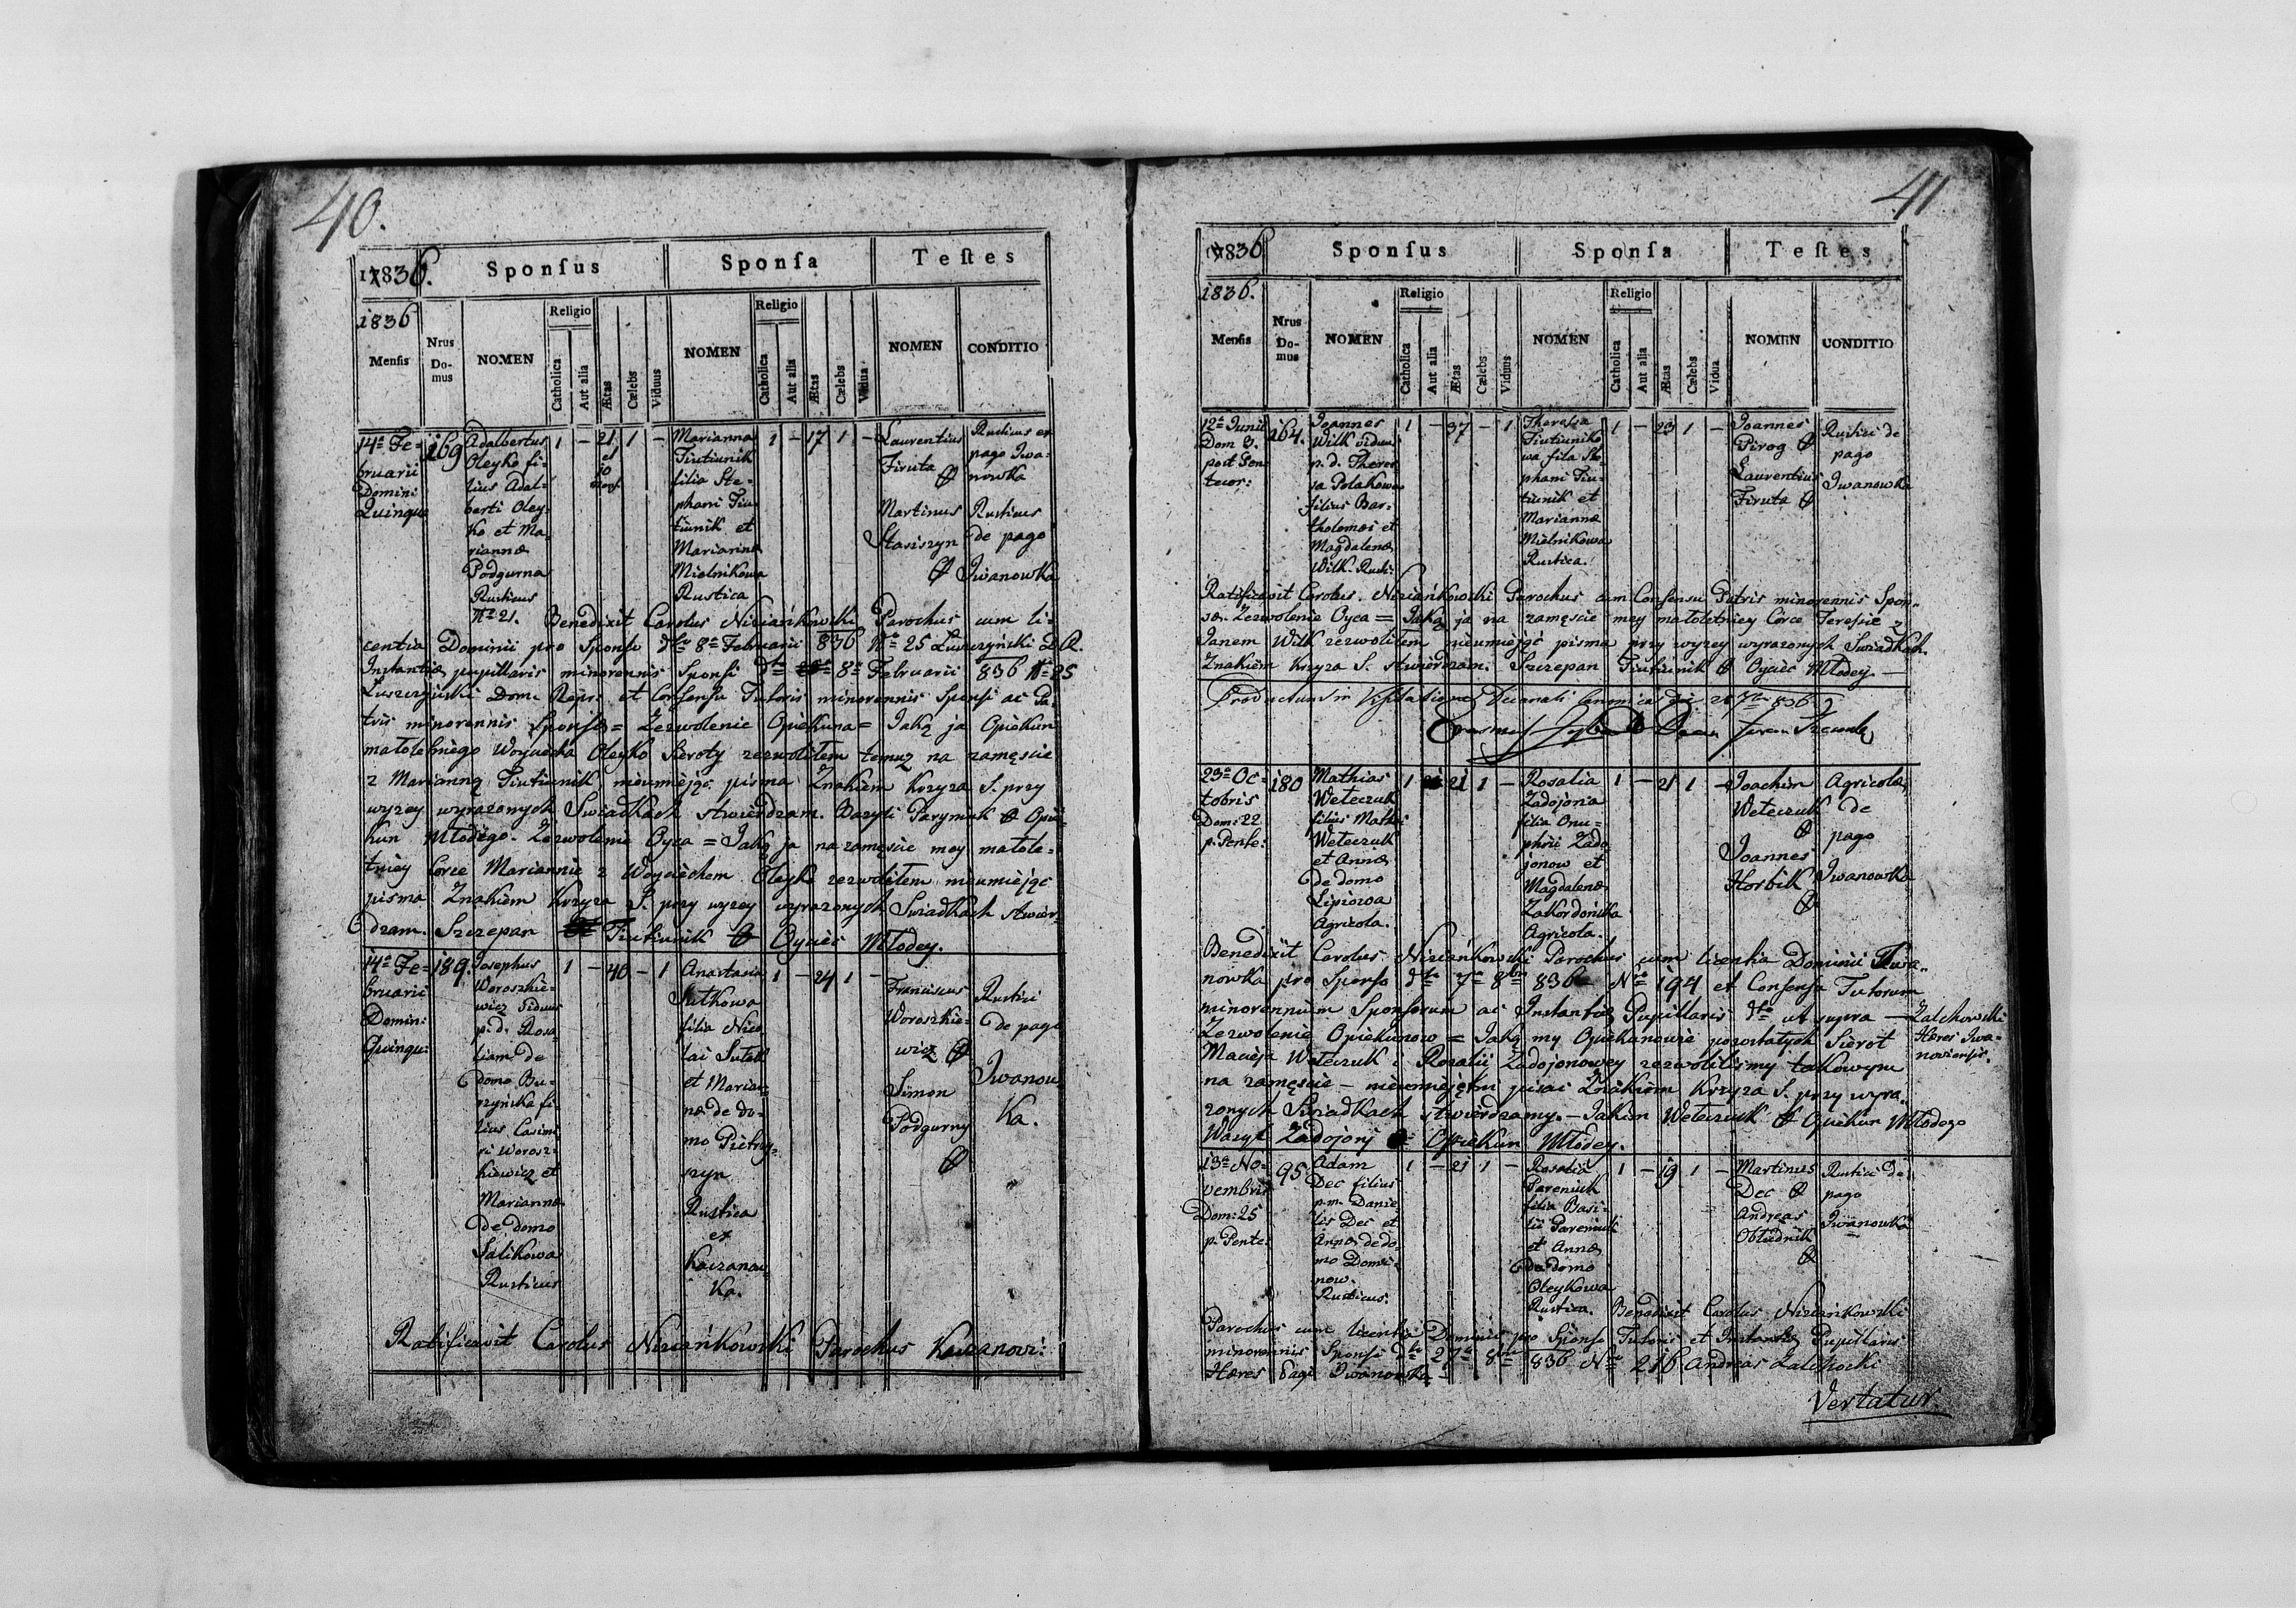 40.
1836.
Sponſus
Sponſa
Teſtes
1836
Menſis
Nrus Domus
NOMEN
Religio
Catholica
Aut alia
Ætas
Cælebs
Viduus
NOMEN
Religio
Catholica
Aut alia
Ætas
Cælebs
Vidua
NOMEN
CONDITIO
14a Fe=
bruarii
Domin:
Quinqu:
169
Adalbertus
Oleyko fi=
lius Adal=
berti Oley=
ko et Ma=
riannæ
Podgurna
Rusticus
No 21.
1 – 21 1 –
et
10
mens.
Marianna
Tiutiunik
filia Ste=
phani Tiu=
tiunik et
Mariannæ
Mielnikowa
Rustica
1 – 17 1 –
Laurentius
Firuta
Martinus
Stasiszyn
Rusticus ex
pago Iwa=
nowka
Rusticus
de pago
Iwanowka
Benedixit Carolus Niziańkowski Parochus cum li=
centia Dominii pro Sponso dto 8a Februarii 836 No 25 Łuszczyński D.R.
Instantiæ pupillaris minorennis Sponsi dto 8a Februarii 836 No 25
Łuszczyński Dom. Repr. et Consensu Tutoris minorennis Sponsi ac Pa=
tris minorennis Sponsæ = Zezwolenie Opiekuna = Jako ja Opiekun
małoletniego Woyciecha Oleyko Sieroty zezwoliłem temuż na zamęscie
z Marianną Tiutiunik nieumiejąc pisma Znakiem Krzyza S. przy
wyzey wyrazonych Swiadkach stwierdzam. Bazyli Parymiuk Opie=
kun Młodego. Zezwolenie Oyca = Jako ja na zamęscie mey małole=
tniey Corce Mariannie z Woyciechem Oleyko zezwoliłem nieumiejąc
pisma Znakiem Krzyza S. przy wyzey wyrazonych Swiadkach stwier=
dzam. Szczepan Tiutiunik Oyciec Młodey.
14a Fe=
bruarii
Domin:
Quinqu:
189.
Josephus
Woroszkie=
wicz Viduus
p. d. Rosa
liam de
domo Bu=
rzyńska fi=
lius Casimi
ri Worosz=
kiewicz et
Mariannæ
de domo
Salikowa
Rusticus
1 – 40 – 1
Anastasia
Sutkowa
filia Nico
lai Sutek
et Marian=
næ de do=
mo Pietry=
szyn
Rustica
ex
Kaczanow
ka.
1 – 24 1 –
Franciscus
Woroszkie=
wicz
Simon
Podgurny
Rustici
de pago
Iwanow
ka.
Ratificavit Carolus Niziańkowski Parochus Kaczanovi:
41
1836
Sponſus
Sponſa
Teſtes
1836.
Menſis
Nrus Domus
NOMEN
Religio
Catholica
Aut alia
Ætas
Cælebs
Viduus
NOMEN
Religio
Catholica
Aut alia
Ætas
Cælebs
Vidua
NOMEN
CONDITIO
12a Junii
Dom 3.
post Pen
tecos:
164.
Joannes
Wilk viduus
p. d. There
sa Polakowa
filius Bar=
tholomæi et
Magdalenæ
Wilk. Rusti:
1 – 37 – 1
Theresia
Tiutiuniko
wa filia Ste
phani Tiu=
tiunik et
Mariannæ
Mielnikowa
Rustica.
1 – 23 1 –
Joannes
Pirog
Laurentius
Firuta
Rustici de
pago
Iwanowka
Ratificavit Carolus Niziańkowski Parochus cum Consensu Patris minorennis Spon=
sæ. Zezwolenie Oyca = Jako ja na zamęscie mey małoletniey Córce Teresie z
Janem Wilk zezwoliłem nieumiejąc pisma przy wyzey wyrazonych Swiadkach
Znakiem Krzyza S. stwierdzam. Szczepan Tiutiunik Oyciec Młodey. —
Productum in Visitatione Decanali Canonica die 28 7bris 836
23a Oc=
tobris
Dom: 22
p. Pente:
180
Mathias
Weteczuk
filius Mathi
Weteczuk
et Annæ
de domo
Lipiowa
Agricola.
1 21 1 –
Rosalia
Zadojona
filia Onu=
phrii Zado
jonow et
Magdalenæ
Zakordońska
Agricola.
1 – 21 1 –
Joachim
Weteczuk
Joannes
Horbik
Agricolæ
de
pago
Iwanowka
Benedixit Carolus Niziańkowski Parochus cum licentia Dominii Iwa=
nowka pro Sponso dto 7a 8bris 836 No 194 et Consensu Tutorum
minorennium Sponsorum ac Instantiæ Pupillaris dto ut supra —
Zalchowski
Hæres Iwa=
noviensis.
Zezwolenie Opiekunow = Jako my Opiekunowie pozostałych Sierot
Macieja Weteczuk i Rozalii Zadojonowey zezwoliliśmy takowym
na zamęscie – nieumiejętni pisać Znakiem Krzyza S. przy wyra=
zonych Swiadkach stwierdzamy. – Jakim Weteczuk Opiekun Młodego
Wasyl Zadojonj Opiekun Młodey.
13a No=
vembris
Dom: 25
p. Pente:
95
Adam
Dec filius
p.m. Danie
lis Dec et
Annæ de do=
mo Domi=
now.
Rusticus.
1 – 21 1 –
Rosalia
Pareniuk
filia Basi=
lii Pareniuk
et Annæ
de domo
Oleykowa
Rustica.
1 – 19 1 –
Martinus
Dec
Andreas
Obłudnik
Rustici de
pago
Iwanowka
Benedixit Carolus Niziańkowski
Parochus cum licentia Dominii pro Sponso Tutoris et Instantiæ Pupillaris
minorennis Sponsi dto 27a 8bris 836 No 216 Andreas Zalchocki
Hæres Pagi Iwanowka –
Vertatur.